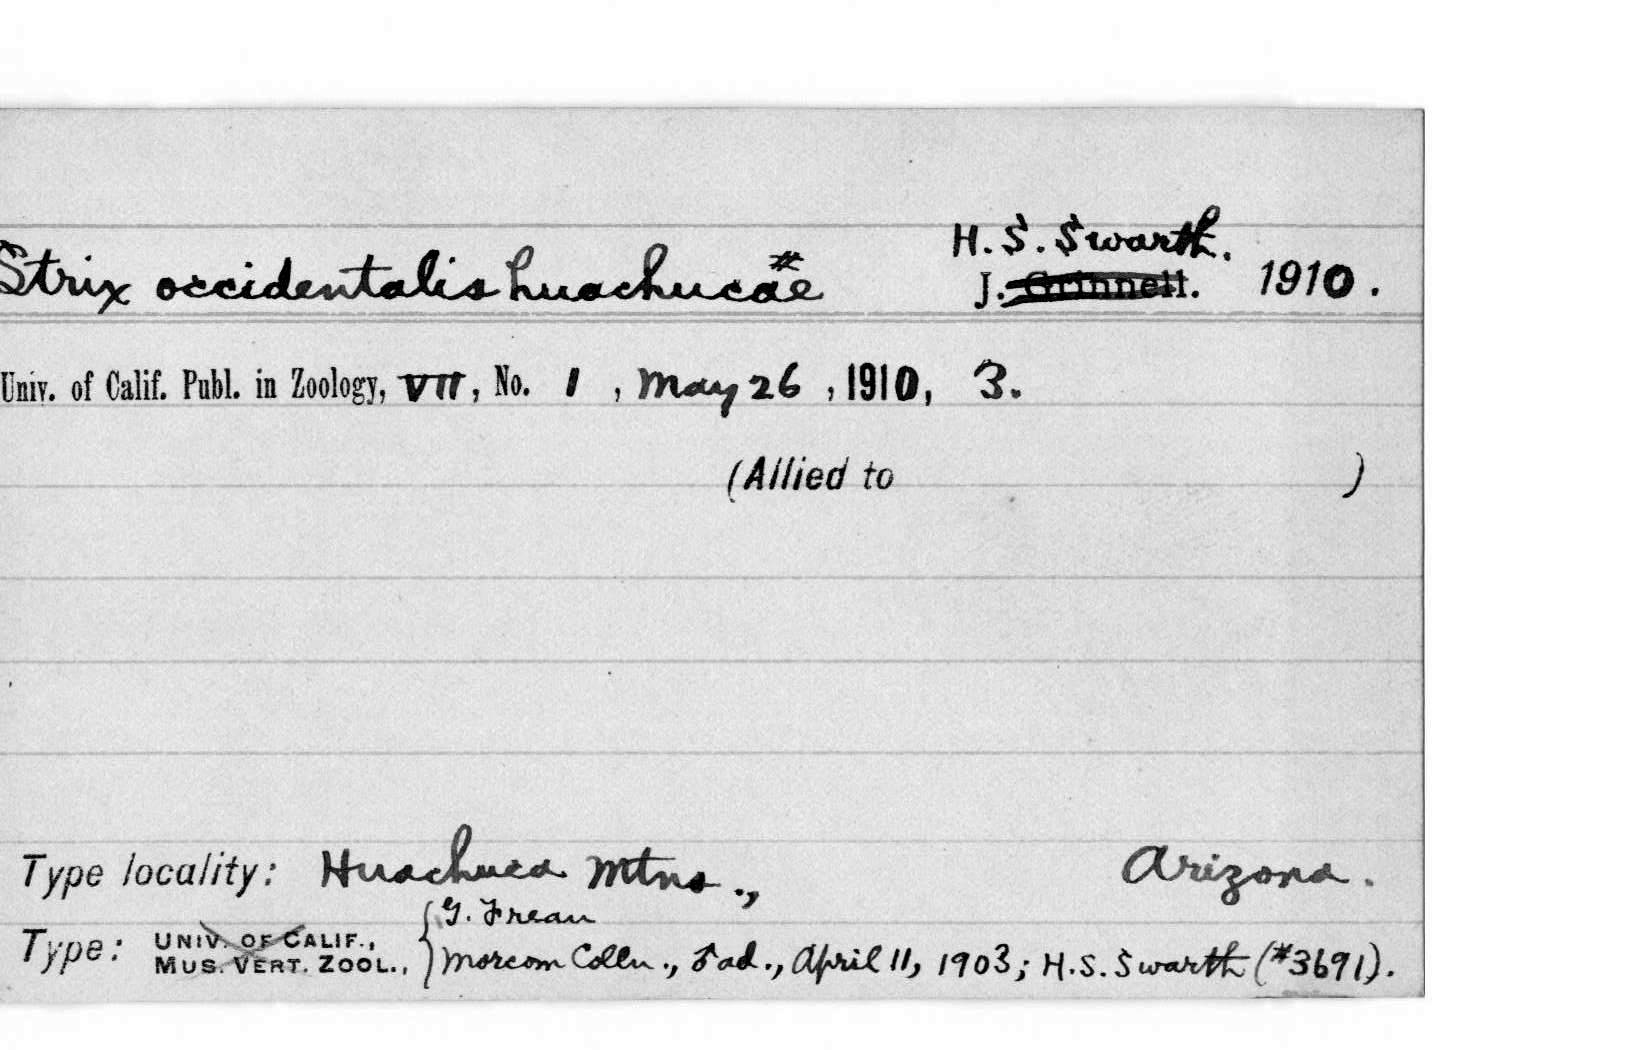 H. S. Swarth.
Strix occidentalis huachucae # J. Grinnell. 1910.
Univ. of Calif. Publ. in Zoology, VII, No. 1, May 26, 1910, 3.
(Allied to )
Type locality: Huachuca Mtns., Arizona.
G. Frean
Type: UNIV. OF CALIF., MUS. VERT. ZOOL., Morcom Colln., ad., April 11, 1903; H. S. Swarth (#3691).